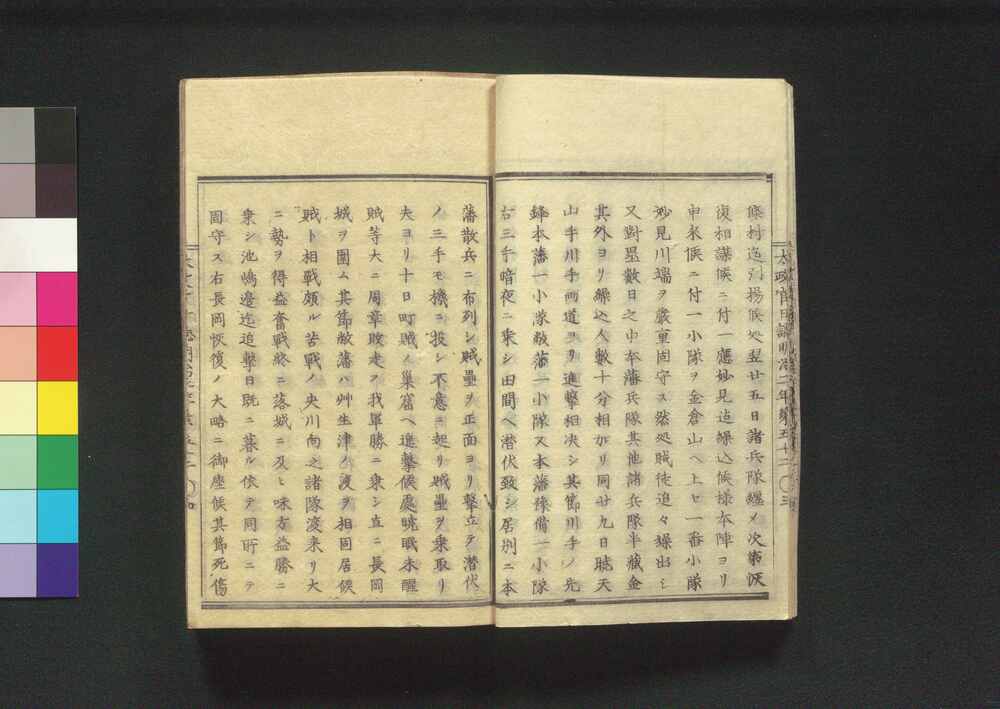 條村迄引揚候処翌廿五日諸兵隊纒メ次第灰
復相謀候ニ付一應妙見迄繰込候様本陣ヨリ
申来候ニ付一小隊ヲ金倉山ヘ上セ一番小隊
妙見川端ヲ嚴重固守ス然処賊徒追々繰出シ
又對塁數日之中本藩兵隊其他諸兵隊半藏金
其外ヨリ繰込人數十分相加リ同廿九日曉天
山手川手両道ヨリ進撃相决シ其節川手ノ先
鋒本藩一小隊敵藩一小隊又本藩豫備一小隊
右三手暗夜ニ乗シ田間ヘ潜伏致シ居別ニ本
太政官日誌明治二年第五十二 〇三
藩散兵ニ布列シ賊壘ヲ正面ヨリ撃立テ潜伏
ノ三手モ機ニ投シ不意ニ起リ賊壘ヲ乗取リ
夫ヨリ十日町賊ノ巢窟ヘ進撃候處曉眠未醒
賊等大ニ周章敗走ス我軍勝ニ乗シ直ニ長岡
城ヲ圍ム其節敵藩ハ艸生津ノ渡ヲ相固居候
賊ト相戰頗ル苦戰ノ央川向之諸隊渡来リ大
ニ勢ヲ得益奮戰終ニ落城ニ及ヒ味方益勝ニ
乗シ池嶋邊迄追撃日既ニ暮ル依テ同所ニテ
固守ス右長岡恢復ノ大略ニ御座候其節死傷